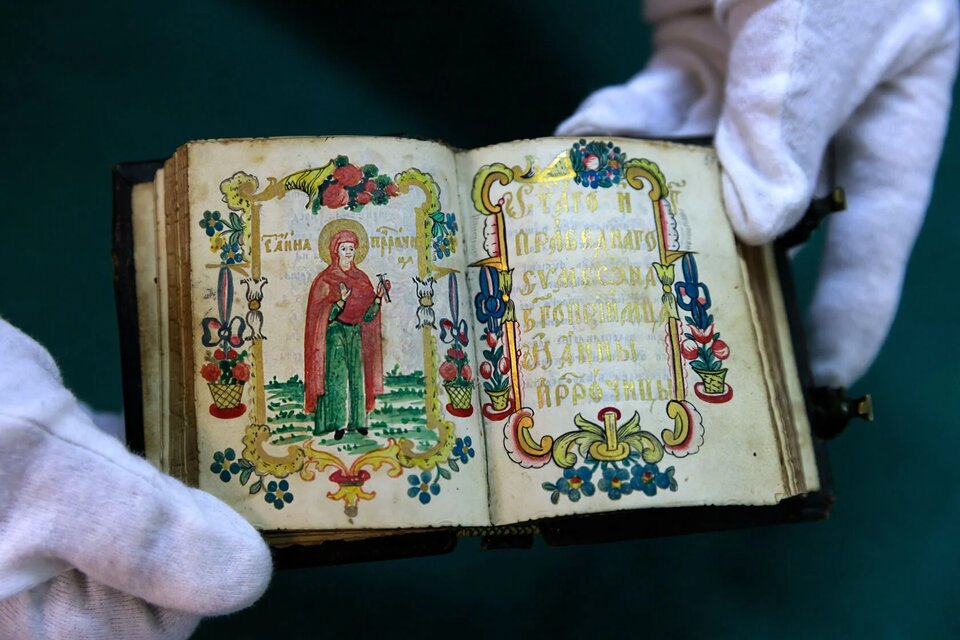 С҃ АННА ПРРО҃ЧИ
ЦА
СТ҃АГО И
ПРАВЕДНАГО
СѴМЕѠНА
БГ҃ОПРІИМЦА
И АННЫ
ПРРО҃ЧИЦЫ